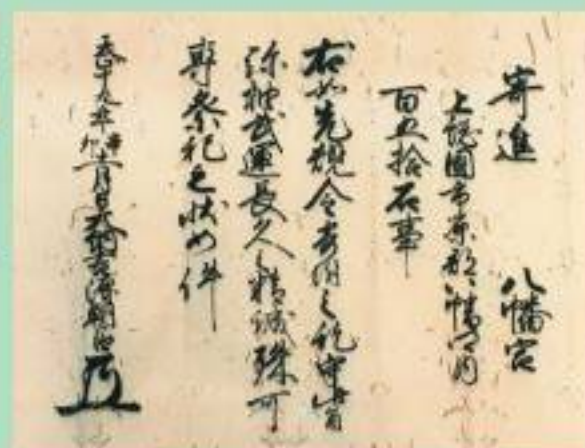 寄進　八幡宮
上総國市原郡八幡内
百五拾石事
右如先規令寄附之訖
弥抽武運長久之精誠殊可
専祭祀之状如件
天正十九年辛卯十一月日大納言源朝臣